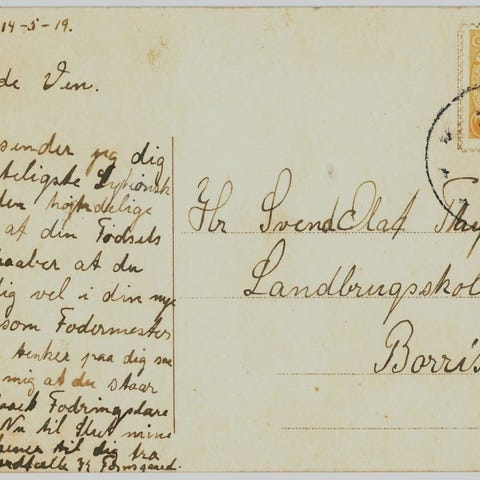 14-5-19.
de Ven.
sender jeg dig
teligste Lykønsk
den højtidelige
af din Fødsels
haaber at du
dig vel i din nye
som Fodermester
tænker paa dig saa
mig at du staar
Fodringslære
Nu til Slut mine
til dig fra
Hr SvendOlaf Thy
Landbrugsskol
Borris